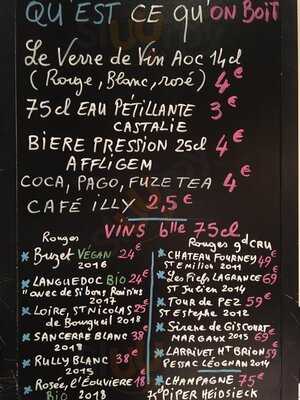 QU'EST CE QU'ON BOIT
Le Verre de Vin Aoc 14cl
(Rouge, Blanc, rosé) 4€
75cl EAU PÉTILLANTE 3€
CASTALIE
BIERE PRESSION 25cl 4€
AFFLIGEM
COCA, PAGO, FUZE TEA 4€
CAFÉ ILLY 2,5€
VINS blle 75cl
Rouges
Buzet VÉGAN 24€
2016
LANGUEDOC BIO 24€
"avec de Si bons Raisins"
2017
LOIRE, ST NICOLAS 25€
de Bourgueil 2018
SANCERRE BLANC 38€
2018
RULLY BLANC 38€
2015
Rosée, L'ÉOUVIERE 18€
BIO 2018
Rouges gd CRU
CHATEAU FOURNEY 49€
ST Emilion 2011
Les Fiefs LAGRANGE 69€
ST Julien 2014
TOUR DE PEZ 59€
ST Estephe 2012
Sirene de GISCOURT 69€
MARGAUX 2015
LARRIVET Ht BRION 59€
PESSAC LÉOGNAN 2014
CHAMPAGNE 75€
PIPER HEIDSIECK